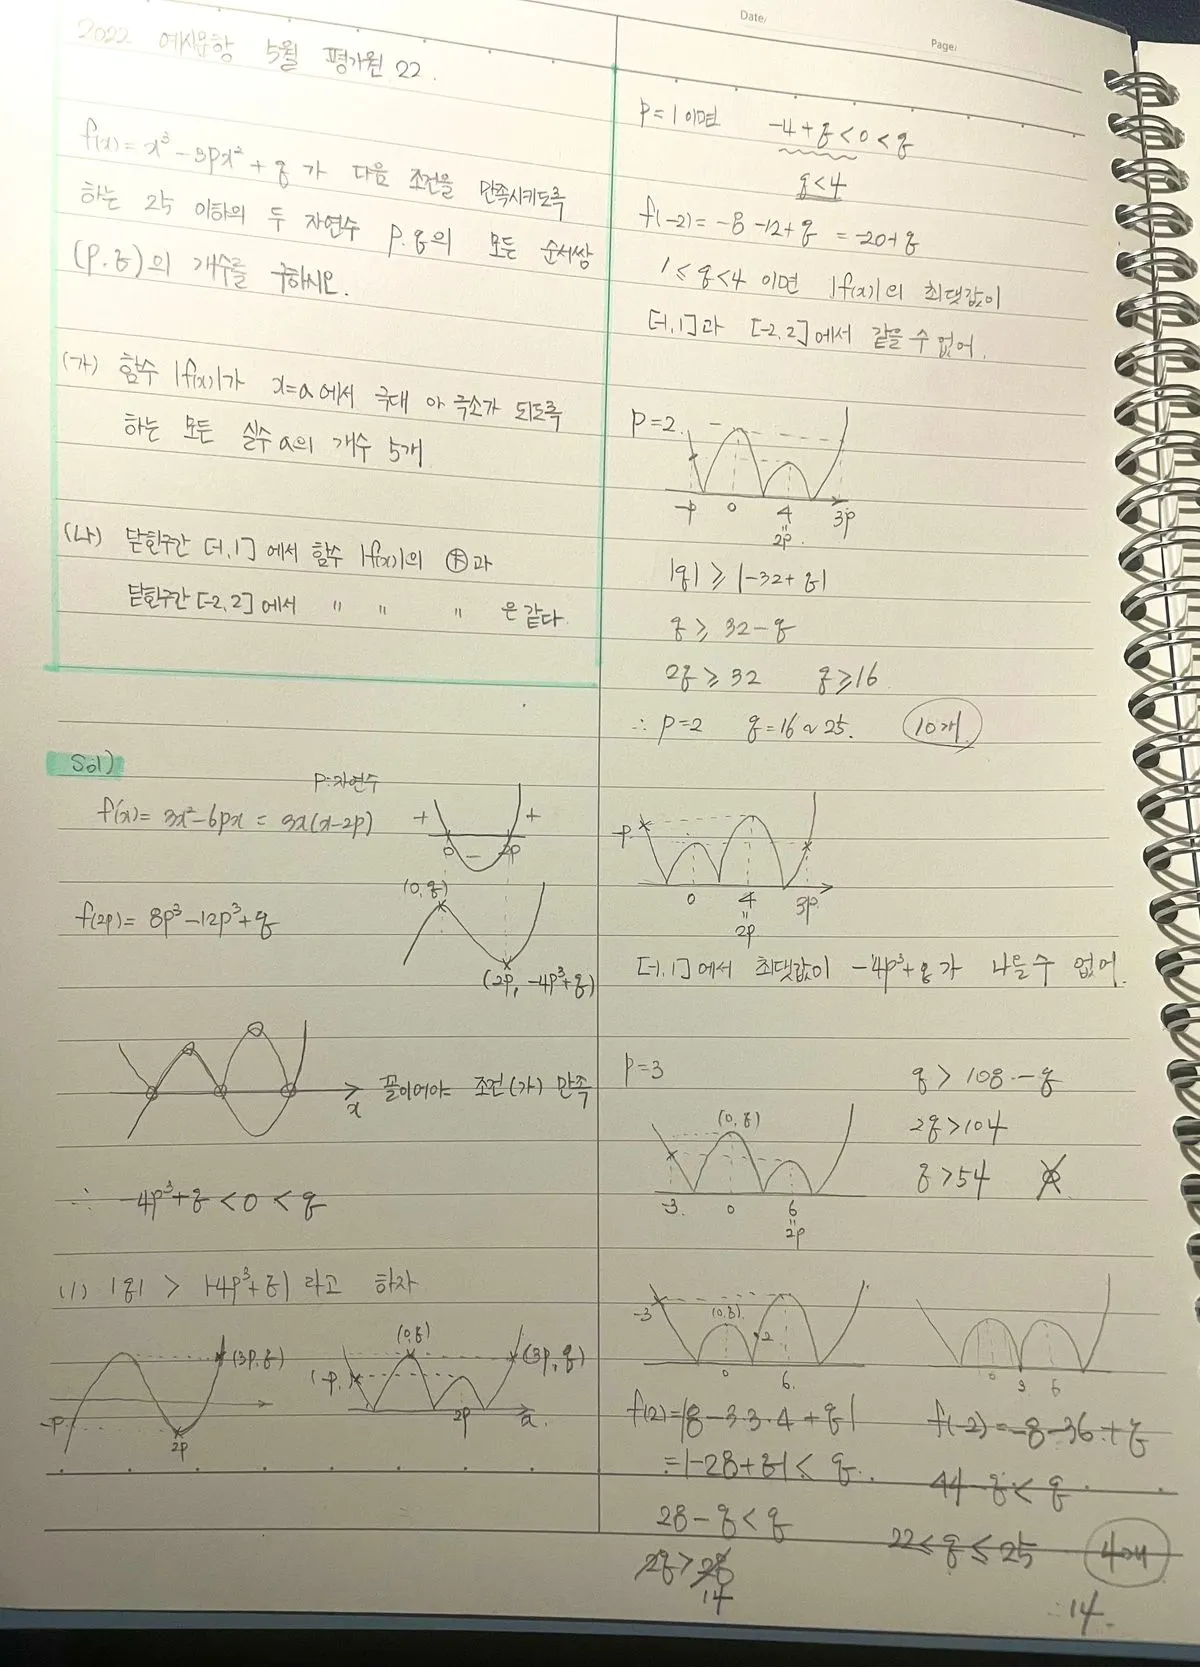 Date/
Page/
2022 예시문항 5월 평가원 22.
f(x) = x³ - 3px² + q 가 다음 조건을 만족시키도록
하는 25 이하의 두 자연수 p. q의 모든 순서쌍
(p. q)의 개수를 구하시오.
(가) 함수 |f(x)|가 x=a 에서 극대 or 극소가 되도록
하는 모든 실수 a의 개수 5개
(나) 닫힌구간 [-1, 1]에서 함수 |f(x)|의 과
닫힌구간 [-2, 2]에서 〃 〃 〃 은 같다.
Sol)
P=자연수
f(x) = 3x² - 6px = 3x(x-2p)
+ - +
0 2p
f(2p) = 8p³ - 12p³ + q
(0, q)
(2p, -4p³+q)
x
꼴이어야 조건(가) 만족
∴ -4p³ + q < 0 < q
(1) |q| > |-4p³ + q| 라고 하자
(3p, q)
-p
2p
(0, q)
-p
(3p, q)
2p
p = 1 이면 -4 + q < 0 < q
q < 4
f(-2) = -8 - 12 + q = -20 + q
1 ≤ q < 4 이면 |f(x)|의 최댓값이
[-1, 1]과 [-2, 2]에서 같을 수 없어.
p = 2.
-p 0 4 3p
=
2p.
|q| ≥ |-32 + q|
q ≥ 32 - q
2q ≥ 32 q ≥ 16
∴ p = 2 q = 16 ~ 25. 10개
-p
0 4 3p
=
2p
[-1, 1]에서 최댓값이 -4p³ + q가 나올 수 없어.
p = 3
q > 108 - q
2q > 104
q > 54
(0, q)
-3. 0 6
=
2p
-3
(0, q)
2
0 6.
0 3 6
f(2) = |8 - 3·3·4 + q|
= |-28 + q| < q.
28 - q < q
2q > 28
14
f(-2) = -8 - 36 + q
44 - q < q
22 ≤ q ≤ 25 4개
∴ 14.